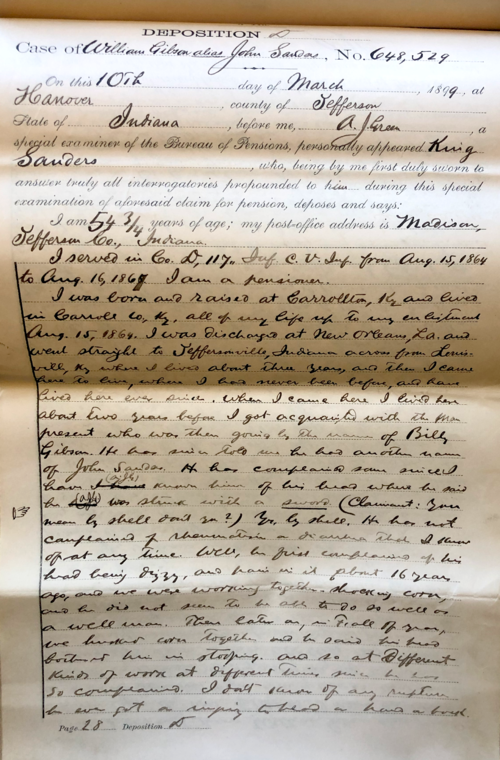 DEPOSITION D
Case of William Gibson alias John Sanders, No. 648,529
On this 10th day of March, 1899, at
Hanover, county of Jefferson
State of Indiana, before me, A. J. Green, a
special examiner of the Bureau of Pensions, personally appeared King
Sanders, who, being by me first duly sworn to
answer truly all interrogatories propounded to him during this special
examination of aforesaid claim for pension, deposes and says:
I am 54 3/4 years of age; my post-office address is Madison,
Jefferson Co., Indiana.
I served in Co. D, 117" Inf. C. V. Inf. from Aug. 15, 1864
to Aug. 16, 1867. I am a pensioner.
I was born and raised at Carrollton, Ky and lived
in Carroll Co, Ky. all of my life up to my enlistment
Aug. 15, 1864. I was discharged at New Orleans, La. and
went straight to Jeffersonville, Indiana across from Louis-
ville, Ky where I lived about three years, and then I came
here to live, where I had never been before, and have
lived here ever since. When I came here I lived here
about two years before I got acquainted with the man
present who was then going by the name of Billy
Gibson. He has since told me he had another name
of John Sanders. He has complained some since I
have known him of his head where he said
he was struck with a sword (Claimant: You
mean by shell dont you?) Yes, by shell. He has not
complained of rheumatism or diarrhea that I know
of at any time. Well, he first complained of his
head being dizzy, and pain in it about 16 years
ago, and we were working together shocking corn,
and he did not seem to be able to do so well as
a well man. Then later on, in Fall of year,
we husked corn together and he said his head
bothered him in stooping. and so at Different
kinds of work at different times since he has
so complained. I don't know of any rupture
he ever got a
Page 28 Deposition D